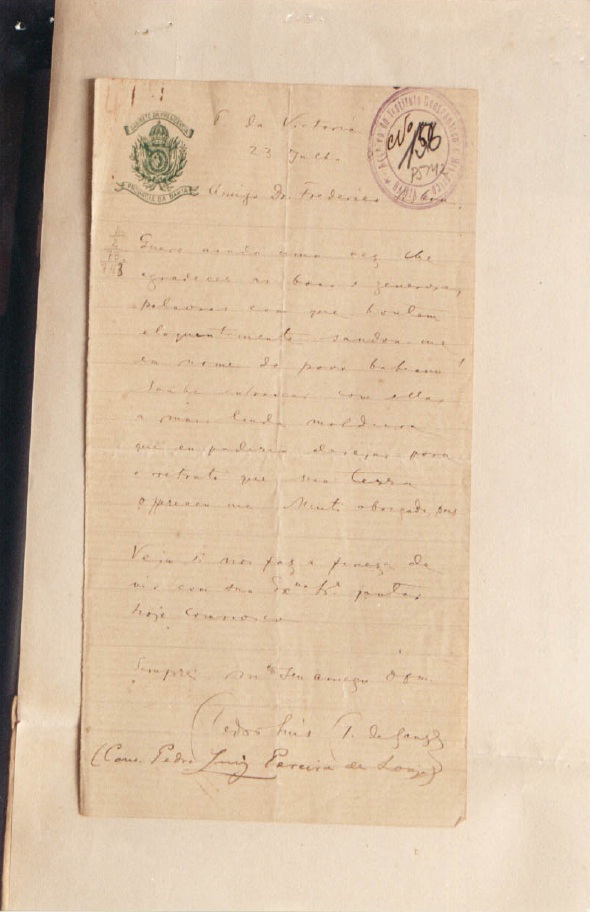 GABINETE DA PRESIDENCIA
PROVINCIA DA BAHIA
Nº 156
P. da Victoria
23 Julho
Amigo Dr. Frederico
Quero ainda uma vez lhe
agradecer as boas e generosas
palavras com que hontem
eloquentemente saudou-me
em nome do povo bahiano!
com ellas
a mais linda moldura
que eu poderia desejar para
o retrato que sua terra
offereceu-me. Muito obrigado, pois
Veja si nos faz a fineza de
vir com sua Exma. jantar
hoje comnosco
Sempre mto. seu amigo
Pedro Luis P. de Souza
(Cons. Pedro Luiz Pereira de Souza)